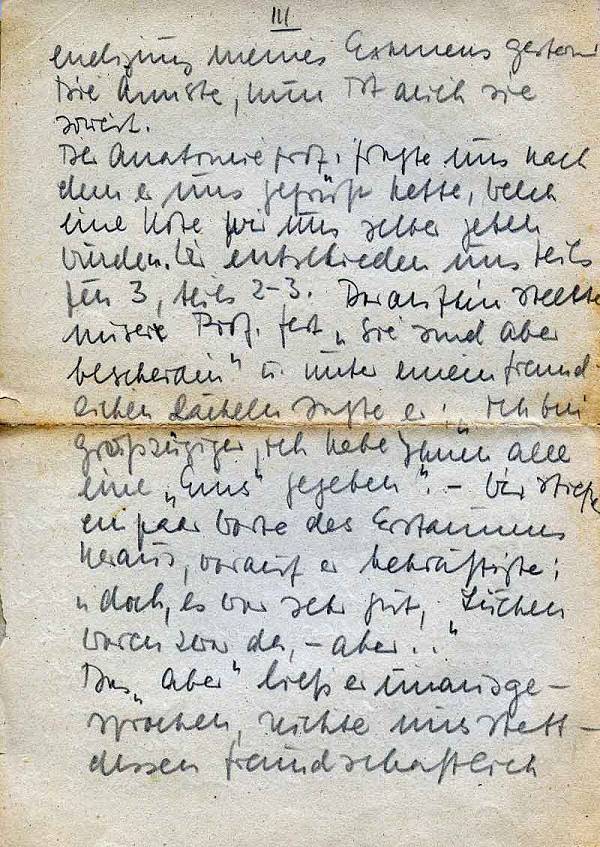 III
endigung meines Examens gestern
Die Ärmste, nun ist auch sie
soweit.
Der Anatomieprof. fragte uns nach
dem er uns geprüft hatte, welch
eine Note wir uns selber geben
würden. Wir entschieden uns teils
für 3, teils 2-3. Daraufhin stellte
unsere Prof. fest „Sie sind aber
bescheiden" u. unter einem freund-
lichen Lächeln sagte er: „Ich bin
großzügiger, ich habe Ihnen alle
eine „Eins" gegeben". – Wir stießen
ein paar Worte des Erstaunens
heraus, worauf er bekräftigte:
„doch, es war sehr gut, Lücken
waren zwar da, – aber .."
Das „aber" ließ er unausge-
sprochen, nickte uns statt-
dessen freundschaftlich